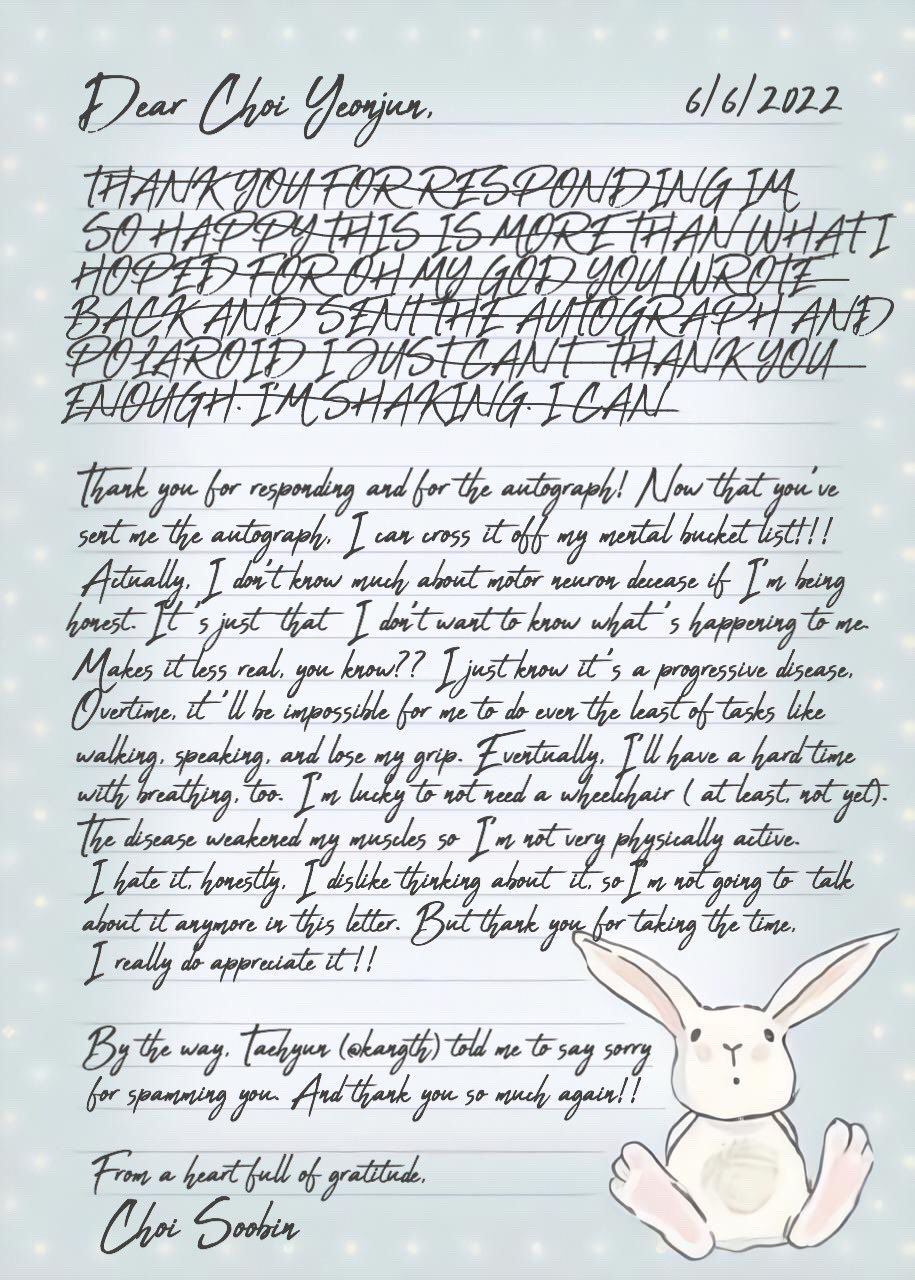 Dear Choi Yeonjun,
6/6/2022
THANK YOU FOR RESPONDING IM
SO HAPPY THIS IS MORE THAN WHAT I
HOPED FOR OH MY GOD YOU WROTE
BACK AND SENT THE AUTOGRAPH AND
POLAROID I JUST CAN'T THANK YOU
ENOUGH. I'M SHAKING. I CAN
Thank you for responding and for the autograph! Now that you've
sent me the autograph, I can cross it off my mental bucket list!!!
Actually, I don't know much about motor neuron decease if I'm being
honest. It's just that I don't want to know what's happening to me.
Makes it less real, you know?? I just know it's a progressive disease,
Overtime, it'll be impossible for me to do even the least of tasks like
walking, speaking, and lose my grip. Eventually, I'll have a hard time
with breathing, too. I'm lucky to not need a wheelchair ( at least, not yet).
The disease weakened my muscles so I'm not very physically active.
I hate it, honestly, I dislike thinking about it, so I'm not going to talk
about it anymore in this letter. But thank you for taking the time,
I really do appreciate it!!
By the way, Taehyun (@kangth) told me to say sorry
for spamming you. And thank you so much again!!
From a heart full of gratitude,
Choi Soobin